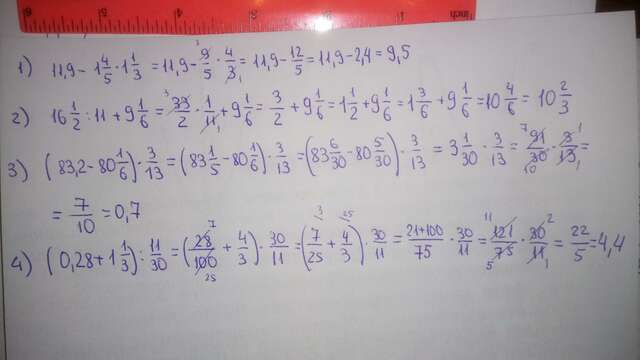 inch
1) 11,9 - 1 4/5 · 1 1/3 = 11,9 - 9/5 · 4/3 = 11,9 - 12/5 = 11,9 - 2,4 = 9,5
2) 16 1/2 : 11 + 9 1/6 = 33/2 · 1/11 + 9 1/6 = 3/2 + 9 1/6 = 1 1/2 + 9 1/6 = 1 3/6 + 9 1/6 = 10 4/6 = 10 2/3
3) (83,2 - 80 1/6) · 3/13 = (83 1/5 - 80 1/6) · 3/13 = (83 6/30 - 80 5/30) · 3/13 = 3 1/30 · 3/13 = 91/30 · 3/13 =
= 7/10 = 0,7
4) (0,28 + 1 1/3) : 11/30 = (28/100 + 4/3) · 30/11 = (7/25 + 4/3) · 30/11 = 21+100/75 · 30/11 = 121/75 · 30/11 = 22/5 = 4,4